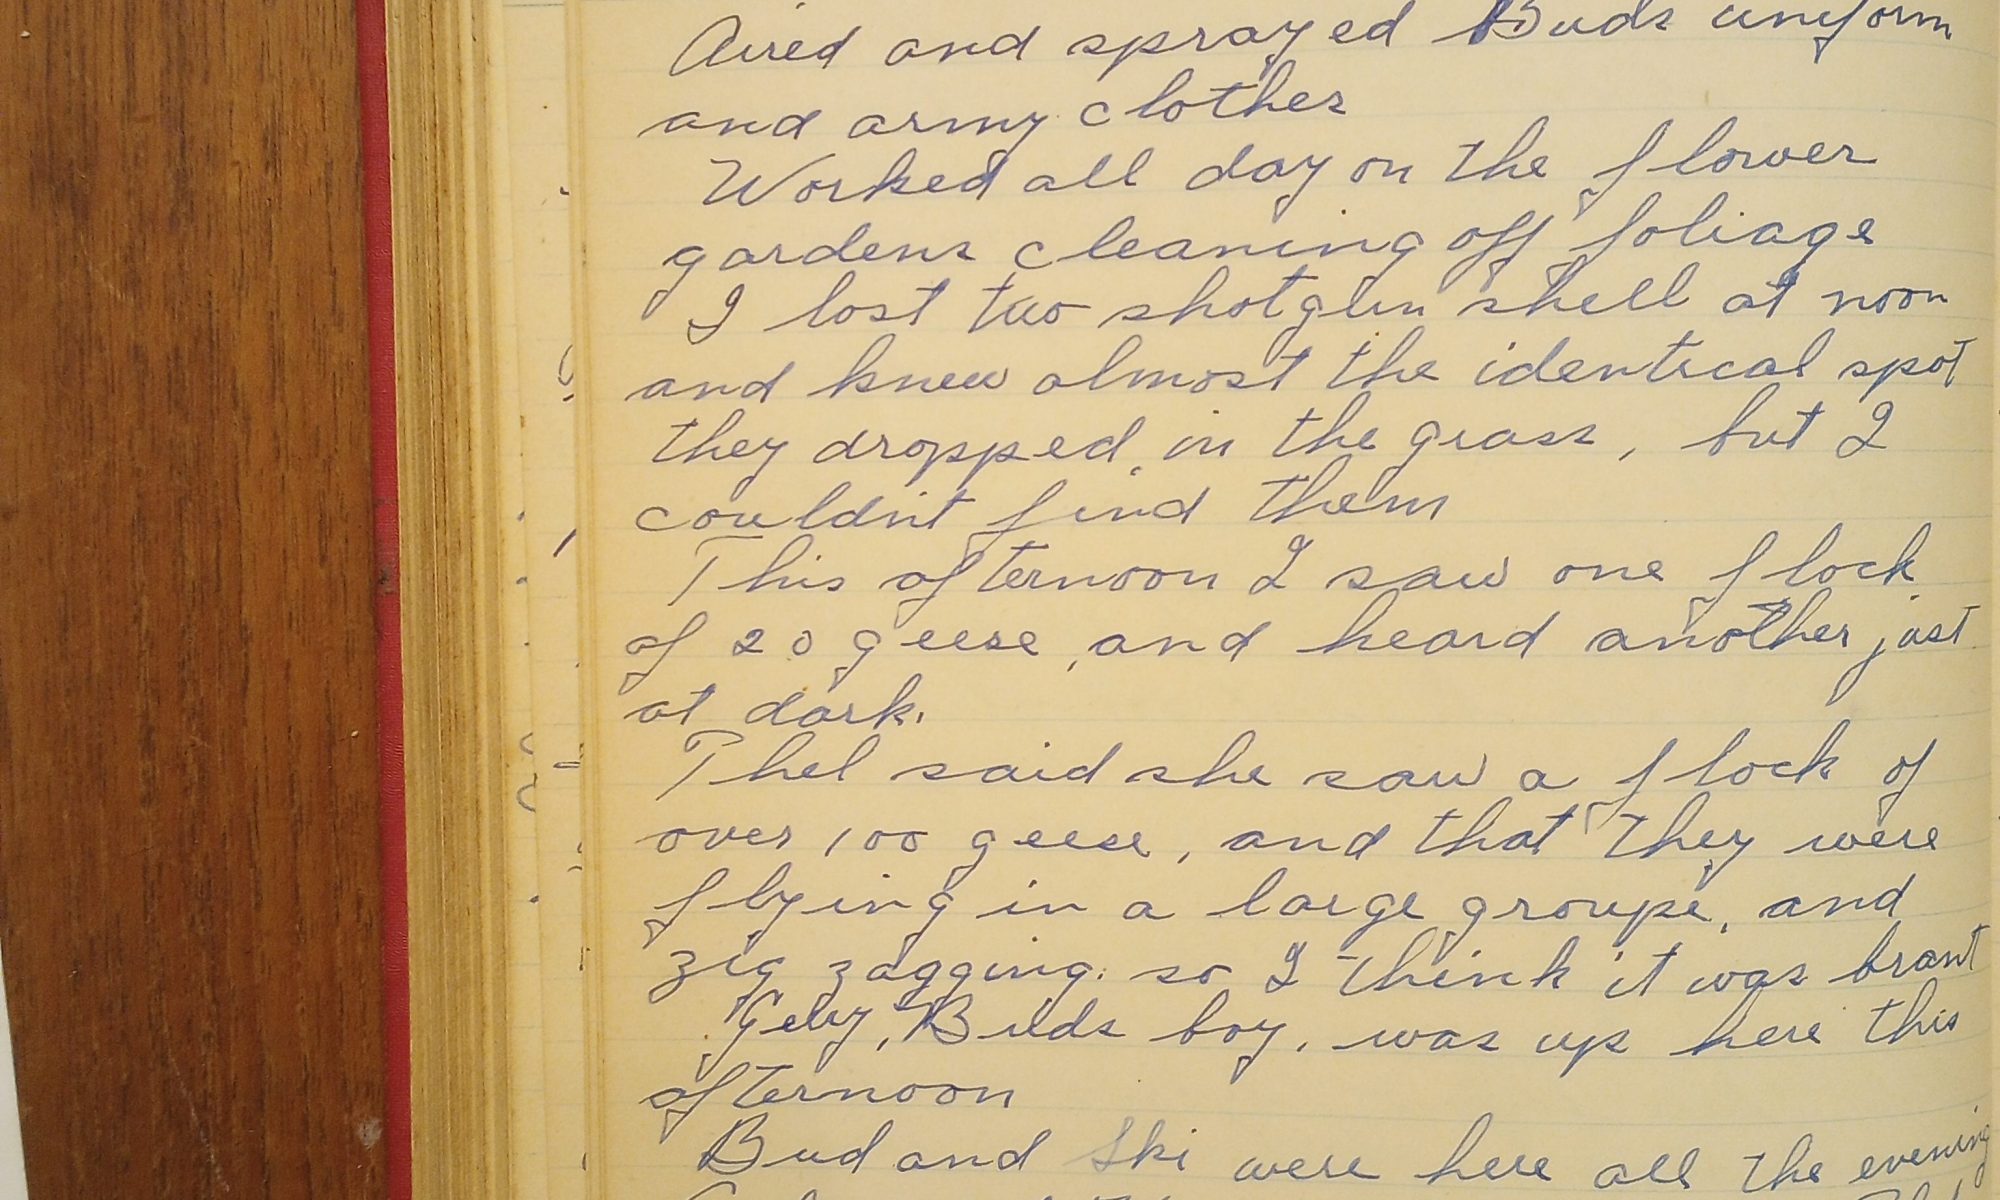 Aired and sprayed Buds uniform
and army clothes
Worked all day on the flower
gardens cleaning off foliage
I lost two shotgun shell at noon
and knew almost the identical spot
they dropped in the grass, but I
couldn't find them
This afternoon I saw one flock
of 20 geese, and heard another just
at dark.
Thel said she saw a flock of
over 100 geese, and that they were
flying in a large groupe, and
zig zagging. so I think it was brant
Buds boy, was up here this
afternoon
Bud and Ski were here all the evening